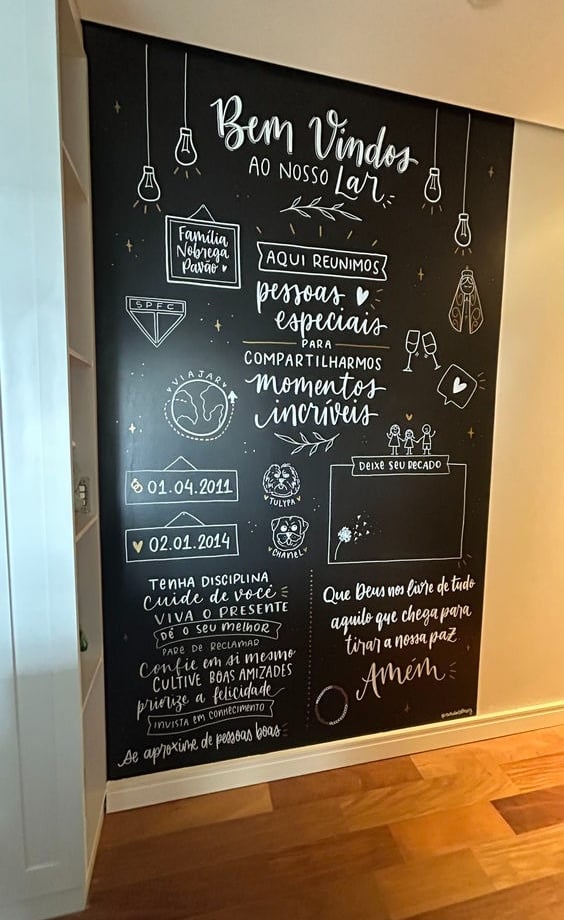 Bem Vindos
AO NOSSO Lar
Família
Nobrega
Pavão
AQUI REUNIMOS
pessoas
especiais
PARA
COMPARTILHARMOS
momentos
incríveis
SPFC
VIAJAR
01.04.2011
02.01.2014
TULYPA
CHANEL
DEIXE SEU RECADO
TENHA DISCIPLINA
Cuide de você
VIVA O PRESENTE
DÊ O SEU MELHOR
PARE DE RECLAMAR
Confie em si mesmo
CULTIVE BOAS AMIZADES
priorize a felicidade
INVISTA EM CONHECIMENTO
Se aproxime de pessoas boas
Que Deus nos livre de tudo
aquilo que chega para
tirar a nossa paz
Amém